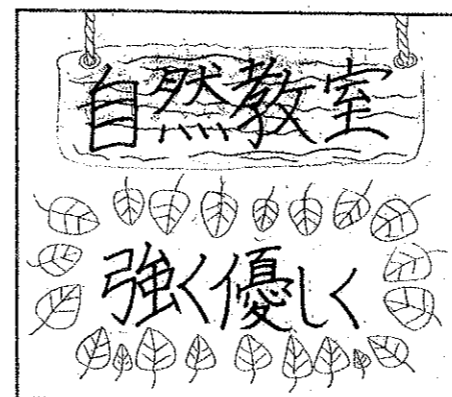 自然教室
強く優しく